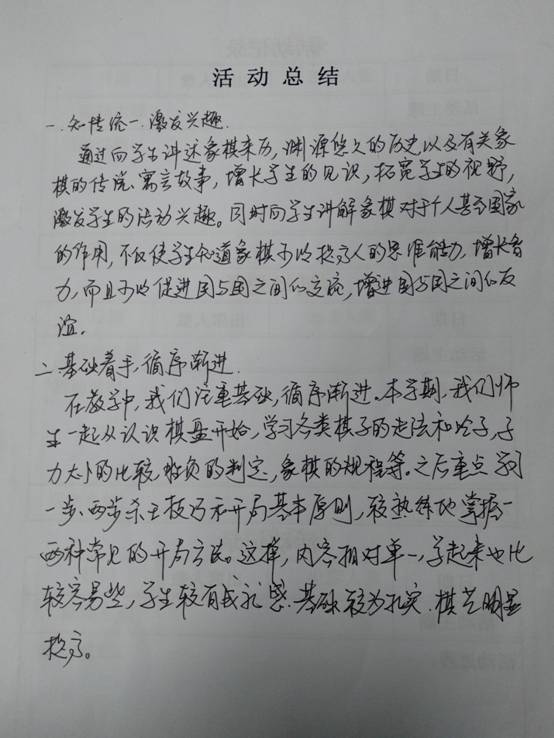 活动总结
一.知传统.激发兴趣.
通过向学生讲述象棋来历,渊源悠久的历史以及有关象
棋的传说、寓言故事,增长学生的见识,拓宽学生的视野,
激发学生的活动兴趣。同时向学生讲解象棋对于个人甚至国家
的作用,不仅使学生知道象棋可以提高人的思维能力,增长智
力,而且可以促进国与国之间的交流,增进国与国之间的友
谊.
二.基础着手,循序渐进.
在教学中,我们注重基础,循序渐进.本学期,我们师
生一起从认识棋盘开始,学习各类棋子的走法和吃子,子
力大小的比较,胜负的判定,象棋的规程等。之后重点学习
一步、两步杀王技巧和开局基本原则,较熟练地掌握一
两种常见的开局方法。这样,内容相对单一,学起来也比
较容易些,学生较有成就感.基础较为扎实.棋艺明显
提高。